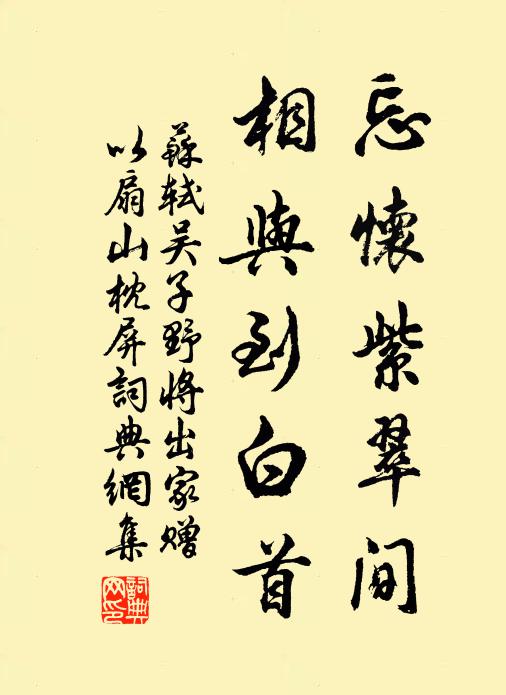 忘懷紫翠間
相與到白首
蘇軾吳子野將出家贈
以扇山枕屏詞典網集
詞典網印